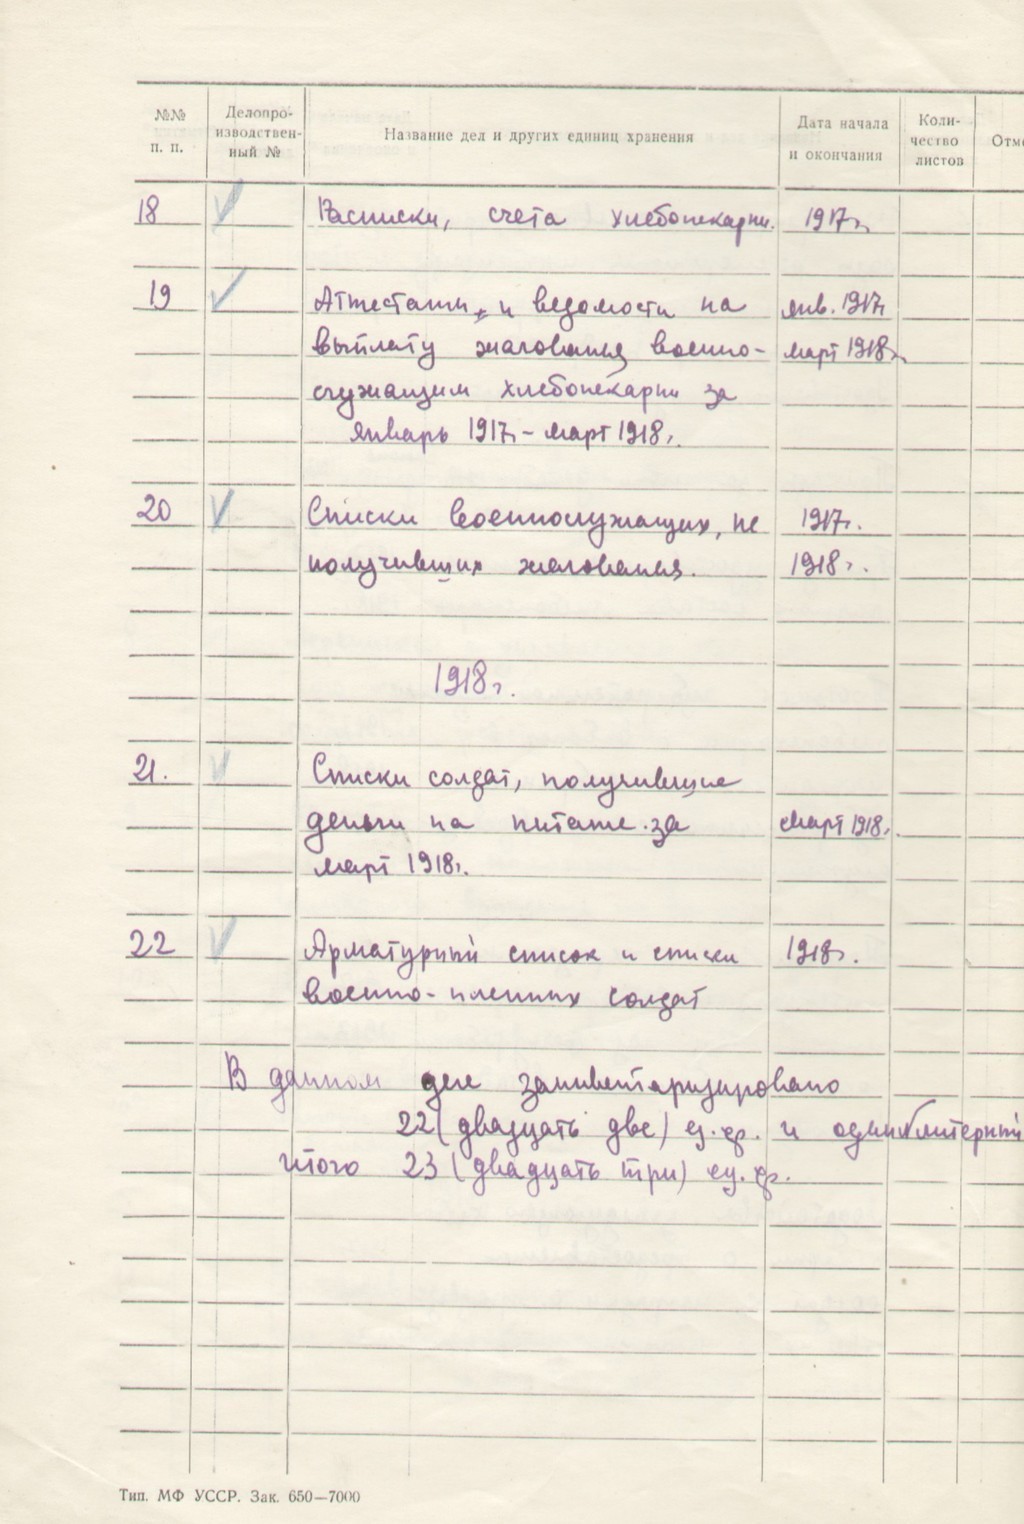 №№ п. п. Делопро-изводствен-ный № Название дел и других единиц хранения Дата начала и окончания Коли-чество листов Отме
18 Расписки, счета хлебопекарни. 1917г.
19 Аттестаты и ведомости на янв. 1917г.
выплату жалования военно- март 1918г.
служащим хлебопекарни за
январь 1917г. - март 1918г.
20 Списки военнослужащих, не 1917г.
получивших жалования. 1918г.
1918г.
21. Списки солдат, получившие
деньги на питание за март 1918г.
март 1918г.
22 Арматурный список и списки 1918г.
военно-пленных солдат
В данном деле заинвентаризировано
22 (двадцать две) ед. хр. и один литерный
итого 23 (двадцать три) ед. хр.
Тип. МФ УССР. Зак. 650—7000